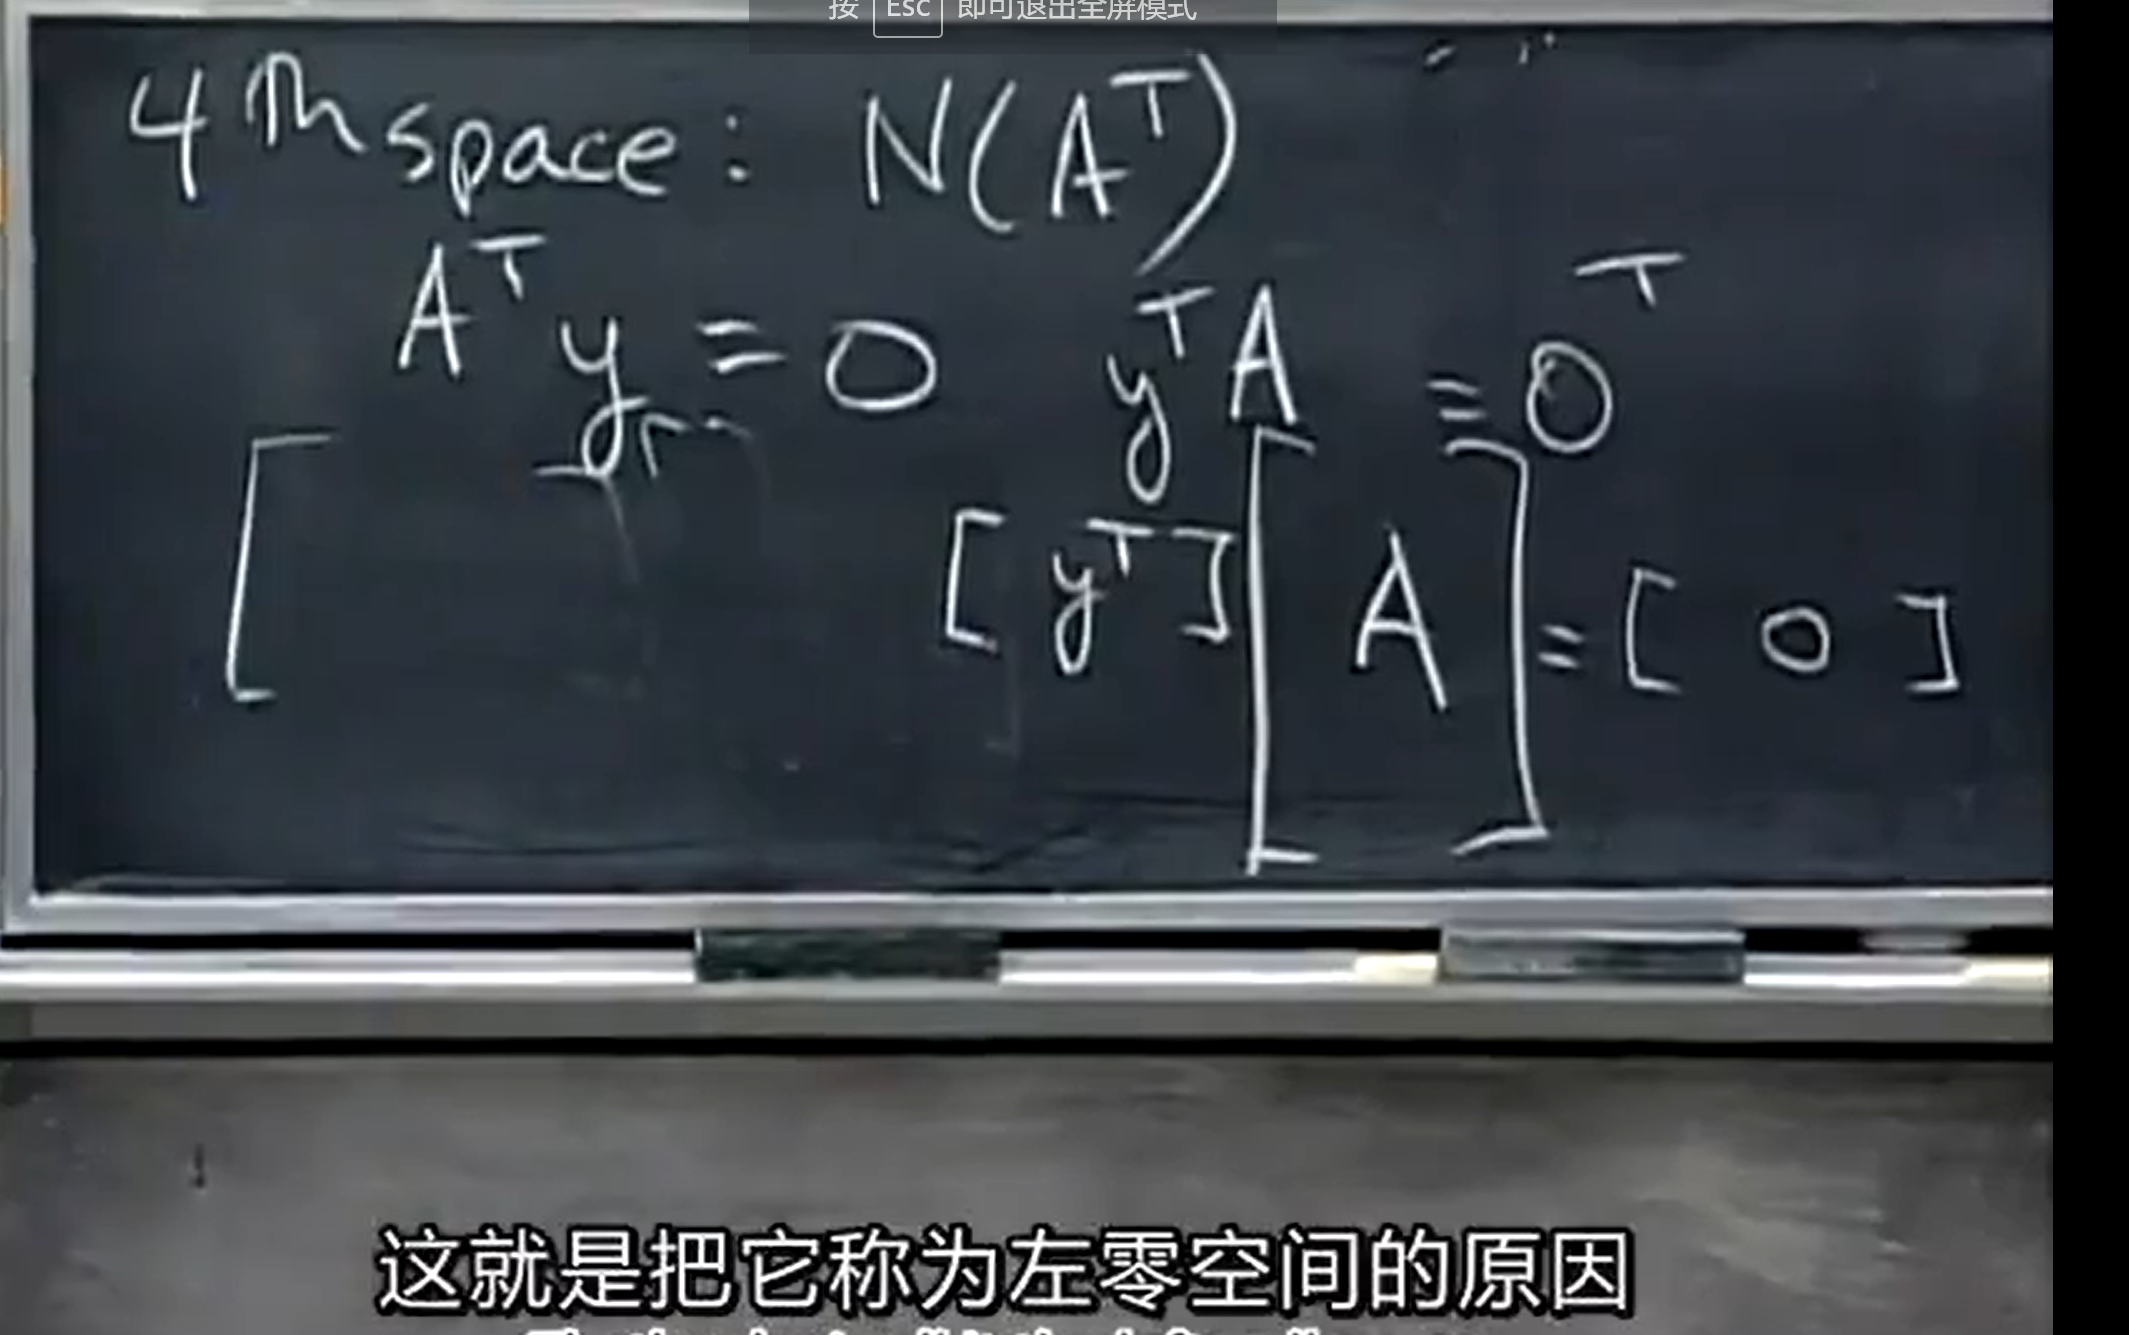 按 Esc 即可退出全屏模式
4th space: N(Aᵀ)
Aᵀy = 0 yᵀA = 0ᵀ
[ [ yᵀ ] [ A ] = [ 0 ]
这就是把它称为左零空间的原因